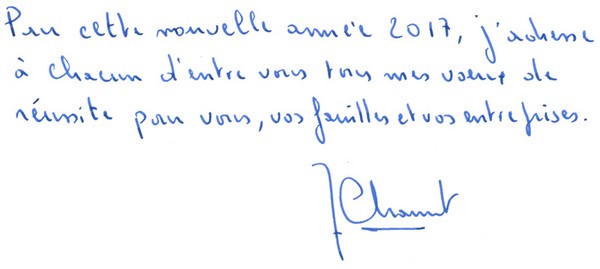 Pour cette nouvelle année 2017, j'adresse
à chacun d'entre vous tous mes voeux de
réussite pour vous, vos familles et vos entreprises.